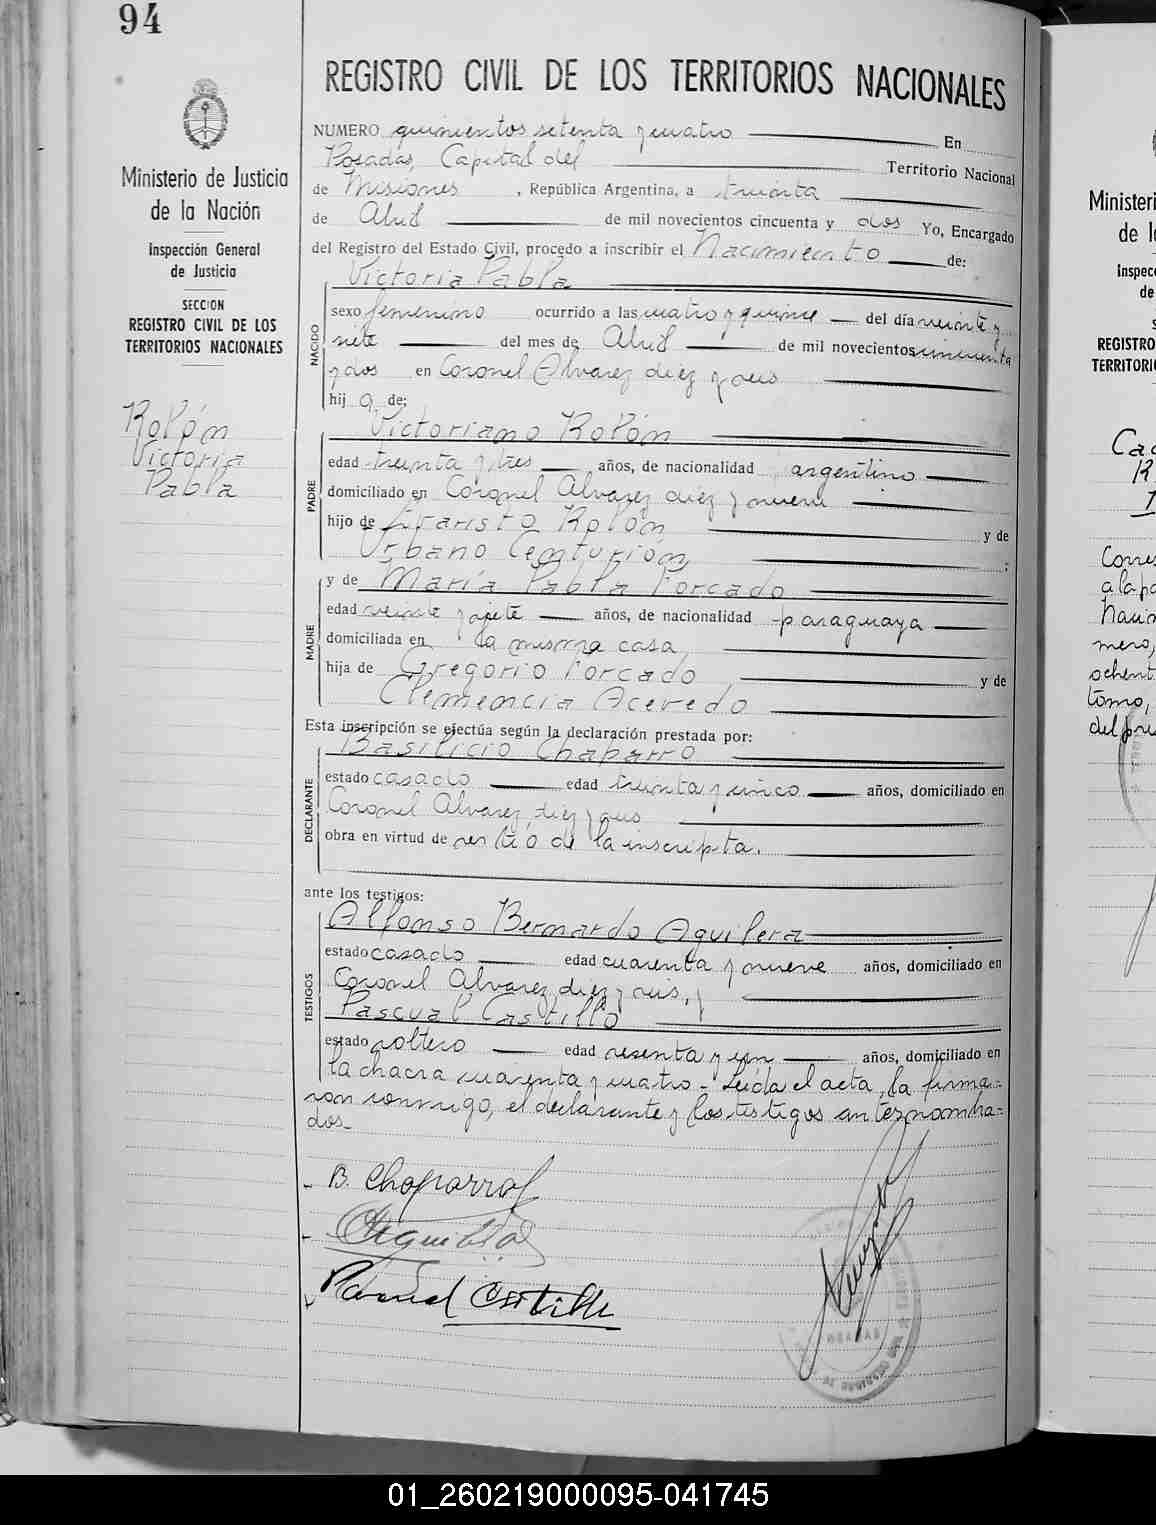 94
Ministerio de Justicia
de la Nación
Inspección General
de Justicia
SECCION
REGISTRO CIVIL DE LOS
TERRITORIOS NACIONALES
Rolón
Victoria
Pabla
REGISTRO CIVIL DE LOS TERRITORIOS NACIONALES
NUMERO quinientos setenta y cuatro En
Posadas, Capital del Territorio Nacional
de Misiones, República Argentina, a treinta
de Abril de mil novecientos cincuenta y dos Yo, Encargado
del Registro del Estado Civil, procedo a inscribir el Nacimiento de:
Victoria Pabla
NACIDO
sexo femenino ocurrido a las cuatro y quince del día veinte y
siete del mes de Abril de mil novecientos cincuenta
y dos en Coronel Alvarez diez y seis
hij a de:
PADRE
Victoriano Rolón
edad treinta y tres años, de nacionalidad argentino
domiciliado en Coronel Alvarez diez y nueve
hijo de Evaristo Rolón y de
Urbano Centurión ;
MADRE
y de María Pabla Torcado
edad veinte y siete años, de nacionalidad paraguaya
domiciliada en la misma casa
hija de Gregorio Torcado y de
Clemencia Acevedo
Esta inscripción se efectúa según la declaración prestada por:
DECLARANTE
Basilicio Chaparro
estado casado edad treinta y cinco años, domiciliado en
Coronel Alvarez, diez y seis
obra en virtud de ser tío de la inscripta.
ante los testigos:
TESTIGOS
Alfonso Bernardo Aguilera
estado casado edad cuarenta y nueve años, domiciliado en
Coronel Alvarez, diez y seis, y
Pascual Castillo
estado soltero edad sesenta y un años, domiciliado en
la chacra cuarenta y cuatro - Leída el acta, la firma=
ron conmigo, el declarante y los testigos antes nombra=
dos.-
B. Chaparro
Pascual Castillo
Ministeri
de l
Inspec
de
REGISTRO
TERRITORI
Corres
a la pa
Nacim
mero,
ochent
tomo,
del pre
01_260219000095-041745